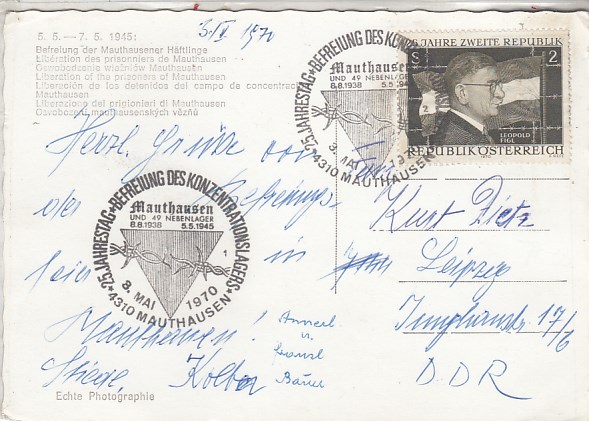 5. 5. — 7. 5. 1945:
Befreiung der Mauthausener Häftlinge
Libération des prisonniers de Mauthausen
Liberation of the prisoners of Mauthausen
Liberación de los detenidos del campo de concentrac
Mauthausen
Liberazione dei prigionieri di Mauthausen
Osvobození mauthausenských vězňů
1970
Herzl. Grüße von
der Befreiungs-
feier in
Mauthausen!
Kolber
Echte Photographie
25 JAHRESTAG·BEFREIUNG DES KONZENTRATIONSLAGERS
Mauthausen
UND 49 NEBENLAGER
8.8.1938 5.5.1945
1
8. MAI 1970
4310 MAUTHAUSEN
25.JAHRESTAG·BEFREIUNG DES KONZ
Mauthausen
UND 49 NEBENLAGER
8.8.1938 5.5.194
4310 MAUTHAUSEN
JAHRE ZWEITE REPUBLIK
S 2
LEOPOLD
FIGL
REPUBLIK ÖSTERREICH
Kurt Dietz
Leipzig
17/6
DDR